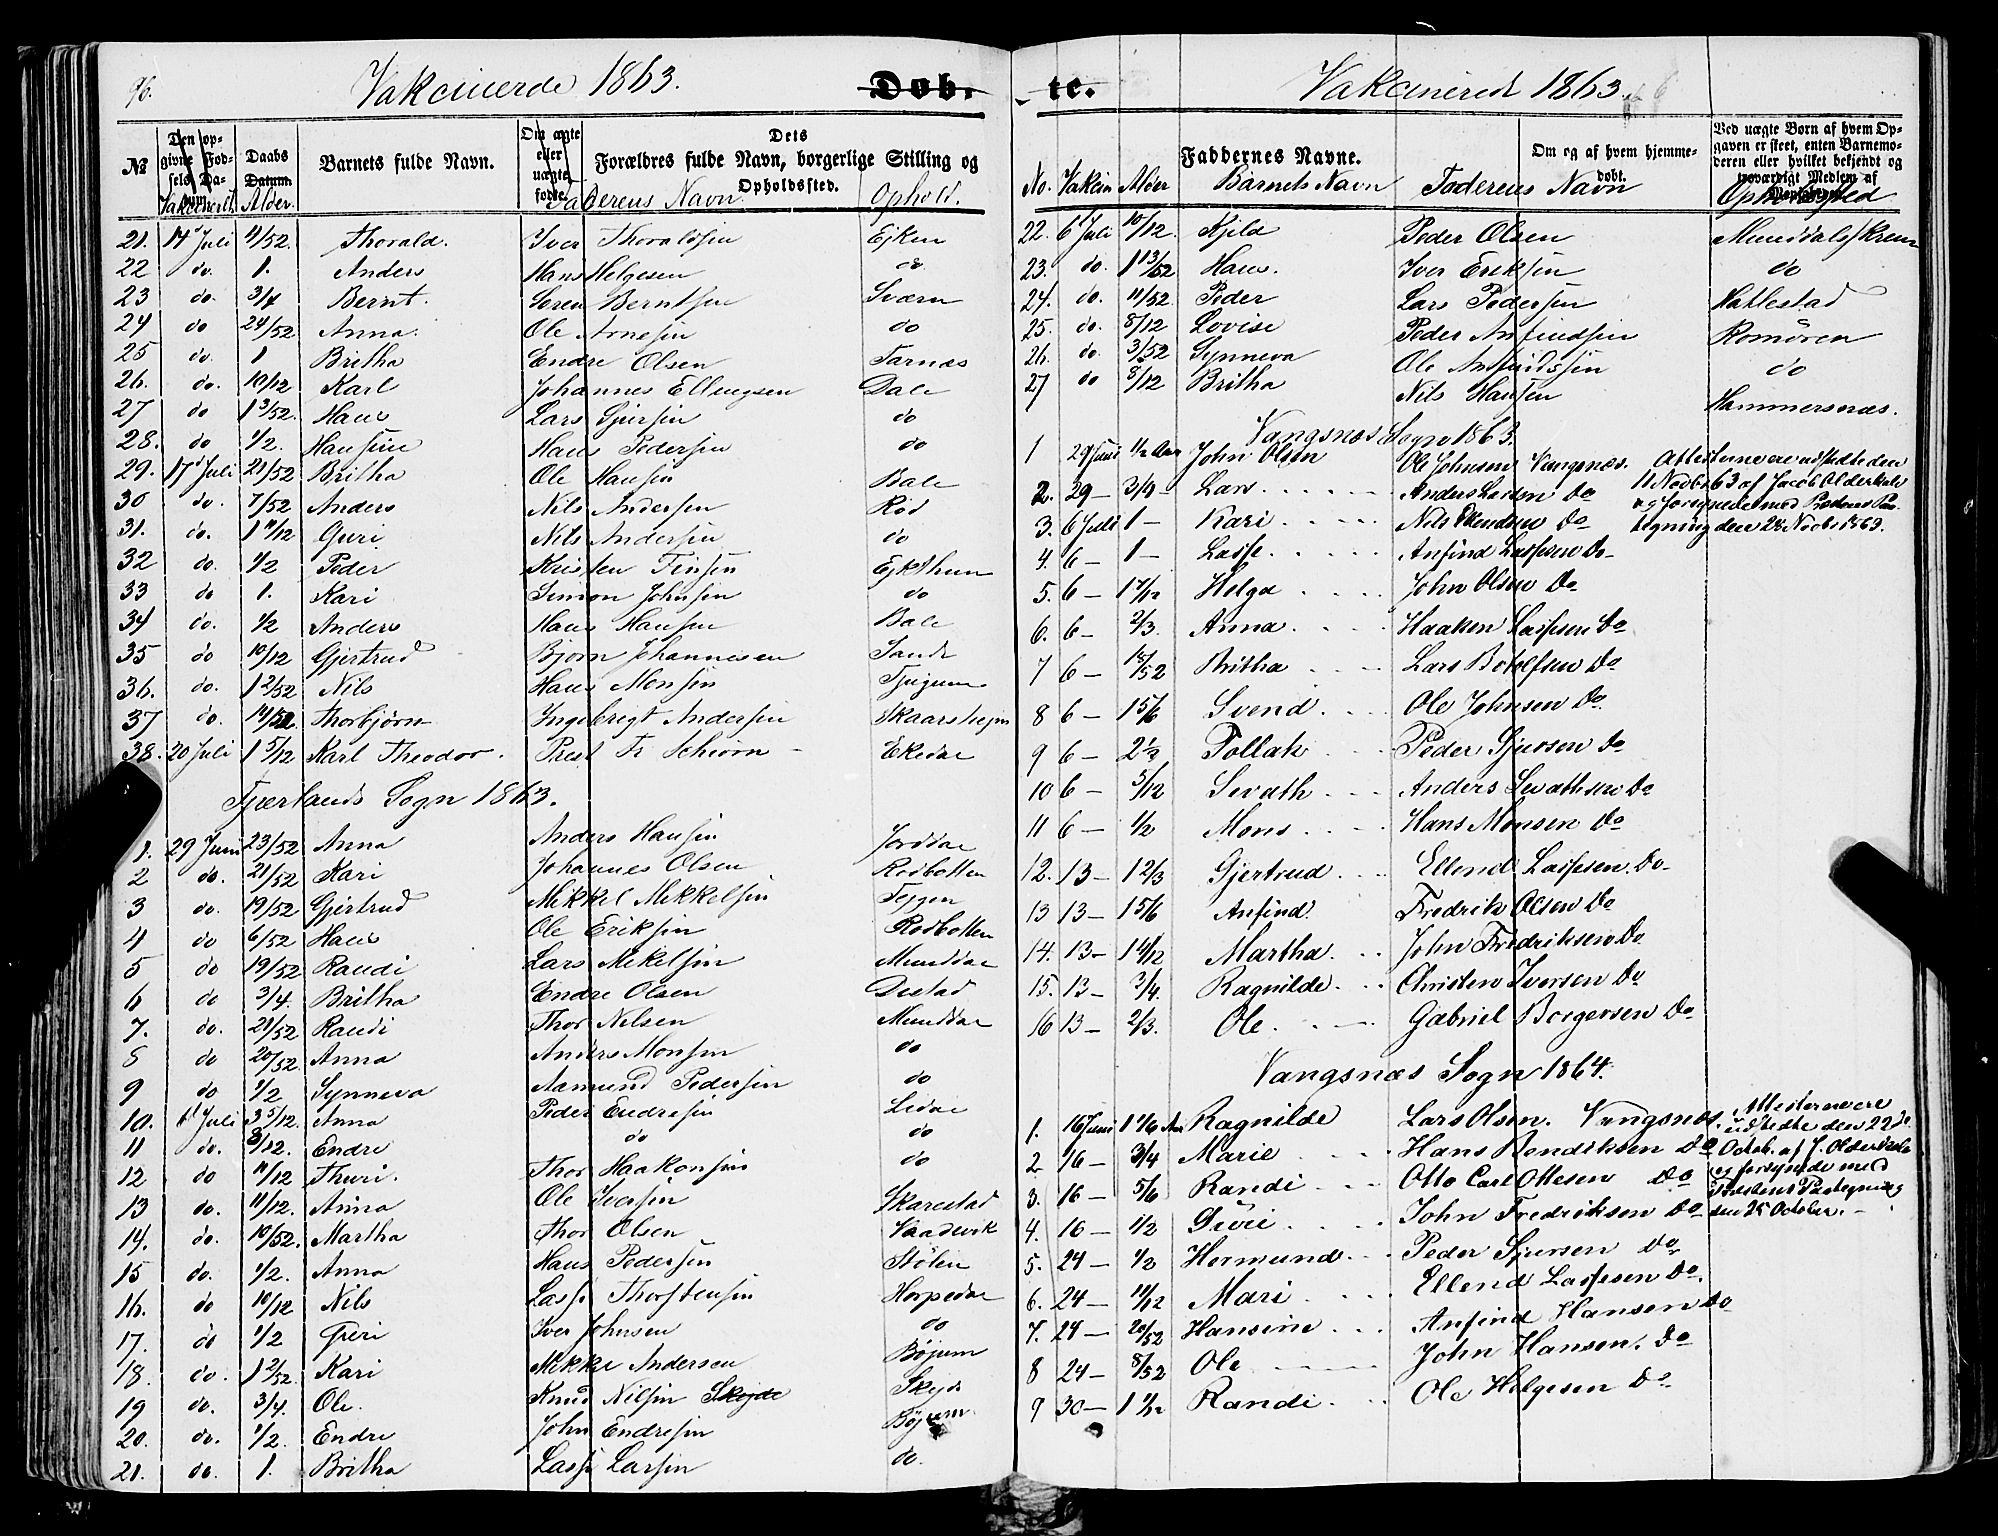 96. Vakcinerde 1863. Døb-
№ | Den opgivne Fødsels Datum. Vakcinert. | Daabs Datum. Alder. | Barnets fulde Navn. | Om ægte eller uægte født. | Dets Forældres fulde Navn, borgerlige Stilling og Opholdssted. Faderens Navn. Ophold.
21. 14 Juli 4/52. Thorald. Iver Thoraldsen Ejken
22 do. 1. Anders Hans Helgesen do
23 do. 3/4 Bernt. Søren Berntsen Sværn
24 do 24/52 Anna. Ole Arnesen do
25 do. 1 Britha Endre Olsen Farnæs
26. do. 10/12 Karl Johannes Ellingsen Dale
27 do 1 3/52. Hans Lars Sjursen do
28. do 1/2. Hansine Hans Pedersen do
29. 17 Juli 21/52 Britha Ole Hansen Bale
30 do. 7/52 Anders Nils Andersen Rød
31. do. 1 11/12 Guri Nils Andersen do
32 do. 1/2 Peder Kristen Finsen Ejkthun
33 do 1. Kari Simon Johnsen do
34 do. 1/2 Anders Hans Hansen Bale
35 do 10/12 Gjertrud Bjørn Johannesen Sande
36. do. 1 2/52 Nils Hans Monsen Tjugum
37 do. 14/52. Thorbjørn Ingebrigt Andersen Skaarshejm
38. 20 Juli 1 5/12 Karl Theodor. Prest Fr Schiørn Ekedal
Fjærlands Sogn 1863.
1. 29 Juni 23/52 Anna Anders Hansen Jorddal
2 do. 21/52 Kari Johannes Olsen Rødbotten
3 do. 19/52 Gjertrud Mikkel Mikkelsen Teggen
4 do 6/52 Hans Ole Eriksen Rødbotten
5 do 19/52 Randi Lars Mikelsen Munddal
6 do 3/4. Britha Endre Olsen Distad
7. do. 21/52 Randi Thor Nilsen Munddal
8 do 20/52 Anna Anders Monsen do
9 do 1/2 Synneva Aamund Pedersen do
10. 6 Juli 3 5/12. Anna Peder Endresen Lidal
11 do. 8/12. Endre do do
12 do 11/12 Thuri. Thor Haakonsen do
13 do. 11/12. Anna Ole Iversen Skarestad
14. do. 10/52. Martha Thor Olsen Vaadvik
15 do. 1/2. Anna Hans Pedersen Stølen
16. do 10/12 Nils Lasse Thorstensen Horpedal
17. do 1/2 Guri Iver Johnsen do
18. do. 1 2/52. Kari Mikkel Andersen Bøjum
19 do. 3/4. Ole. Knud Nilsen Skejde Skejd
20. do. 1/2. Endre John Endresen Bøjum
21. do. 1. Britha Lasse Larsen do.
te. Vakcinered 1863
Faddernes Navne. | Om og af hvem hjemmedøbt. | Ved uægte Børn af hvem Opgaven er skeet, enten Barnemoderen eller hvilket bekjendt og troværdigt Medlem af Menigheden.
No. Vakcin Alder Barnets Navn Faderens Navn Opholdssted
22. 6 Juli 10/12. Kjeld Peder Olsen Munddals
23. do. 1 13/52 Hans. Iver Eriksen do
24. do. 11/52. Peder Lars Pedersen Hatlestad
25. do. 8/12 Lovise Peder Anfindsen Romøren
26. do 3/52 Synneva Ole Anfindssen do
27 do 8/12 Britha Nils Hansen Hammersnæs.
Vangsnæs Sogn 1863.
1 29 Juni 1/2 Aar John Olsen Ole Johnsen Vangsnæs. Attesterne ere udstedte den
2. 29 – 3/4 – Lars. Anders Larsen Do 11 Novbr 63 af Jacob Olderdals
3. 6 Juli 1 – Kari Nils Do og forsynede med Præstens Paa
4. 6 – 1 – Lasse. Anfind Lassesen Do tegning den 28 Novbr 1863.
5. 6 – Helga John Olsen Do
6. 6 – 2/3. Anna. Haaken Lassesen Do
7 6 – 18/52 Britha Lars Botolfsen Do
8 6 – 1 5/6 Svend. Ole Johnsen Do.
9 6 – 2 1/3 Tollak Peder Sjursen Do
10 6 – 5/12 Sevath Anders Sevathsen Do
11 6 – 1/2 Mons Hans Monsen Do
12. 13 – 1 2/3 Gjertrud Ellend Lassesen. Do.
13 13 – 1 5/6 Anfind. Fredrik Olsen Do
14. 13 – Martha. John Fredriksen Do
15. 13 – 3/4. Ragnilde Christen Iversen Do
16 13 – 2/3. Ole. Gabriel Borgersen Do
Vangsnæs Sogn 1864.
1. 16 Juni 1 1/6 Aar Ragnilde Lars Olsen. Vangsnæs. Attesterne ere udstedte den 22de
2 16 – 3/4 Marie Hans Bendiksen Do Octob. af J. Olderdals
3. 16 – 5/6 Randi Otto Carl Ottesen Do og forsynede med Præstens Paategning
4. 16 – 1/2 John Fredriksen Do den 25 October.
5. 24 – 1/2 Hermund Peder Sjursen Do
6. 24 – 11/12 Mari Ellend Lassesen Do.
7. 24 – 20/52 Hansine Anfind Hansen Do
8 24 – 8/52 Ole John Hansen. Do
9 30 – Randi Ole Helgesen Do.